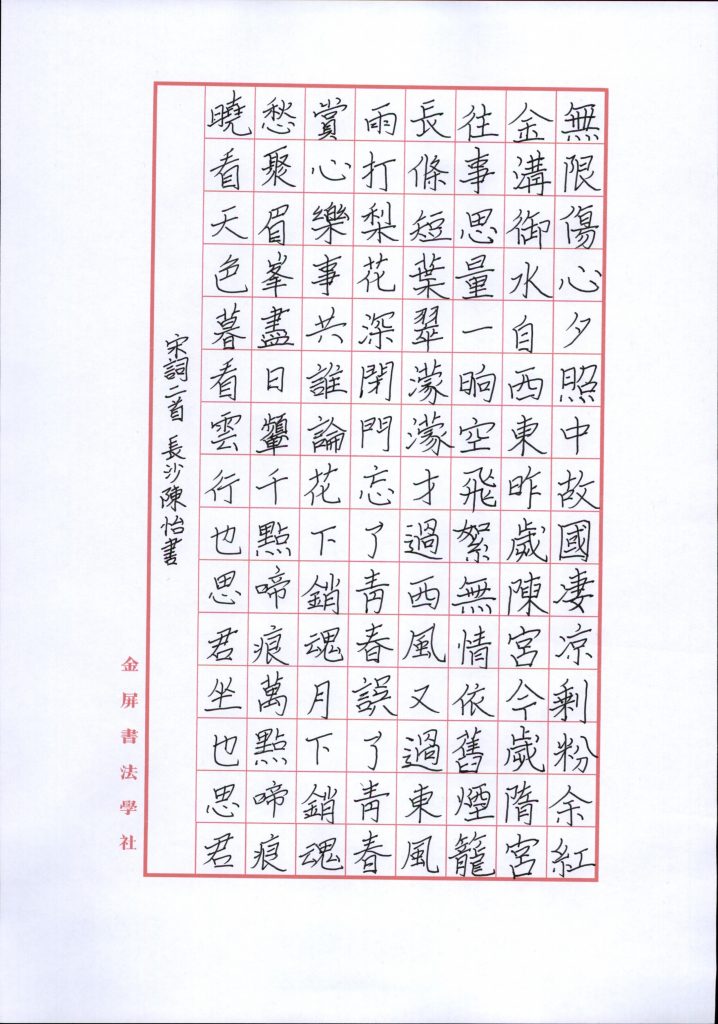 無限傷心夕照中故國凄凉剩粉余紅
金溝御水自西東昨歲陳宮今歲隋宮
往事思量一晌空飛絮無情依舊煙籠
長條短葉翠濛濛才過西風又過東風
雨打梨花深閉門忘了青春誤了青春
賞心樂事共誰論花下銷魂月下銷魂
愁聚眉峯盡日顰千點啼痕萬點啼痕
曉看天色暮看雲行也思君坐也思君
宋詞二首 長沙陳怡書
金屏書法學社